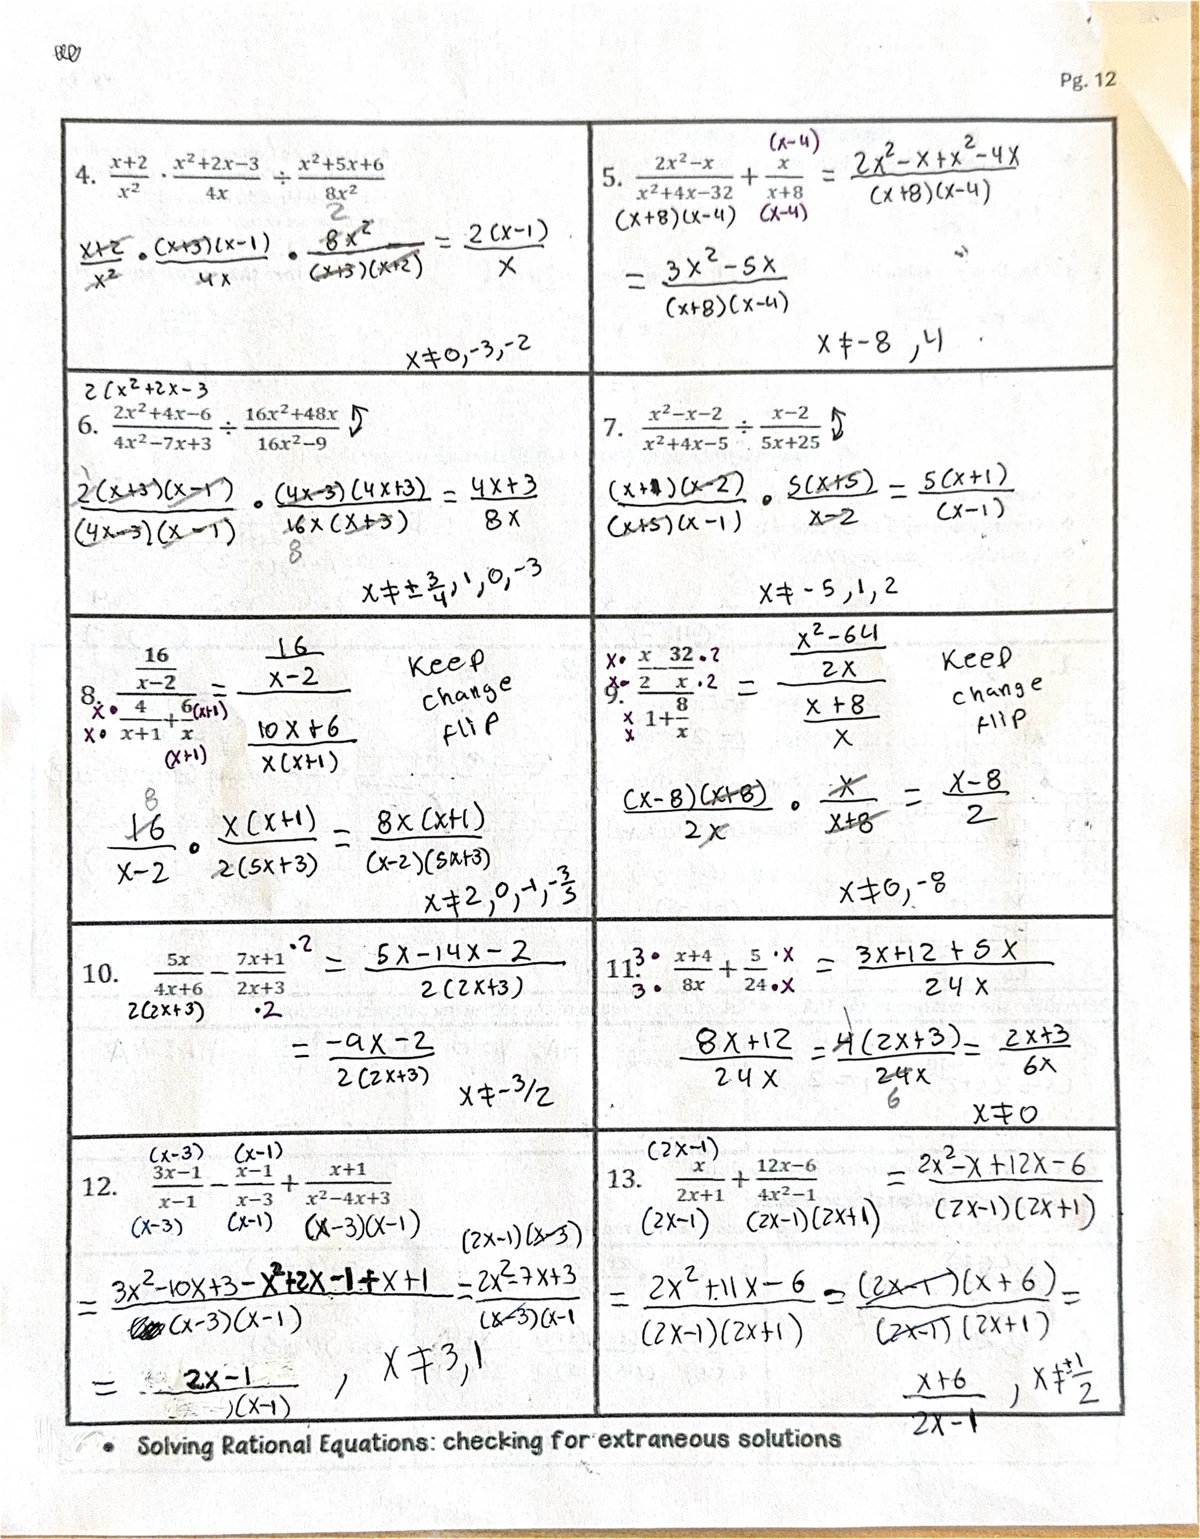 Pg. 12
4. (x+2)/x² · (x²+2x−3)/4x ÷ (x²+5x+6)/8x²
(x+2)/x² · (x+3)(x-1)/4x · 8x²/(x+3)(x+2) = 2(x-1)/x
2
x≠0,-3,-2
(x-4)
5. (2x²−x)/(x²+4x−32) + x/(x+8) = (2x²-x+x²-4x)/(x+8)(x-4)
(x+8)(x-4) (x-4)
= (3x²-5x)/(x+8)(x-4)
x≠-8, 4
2(x²+2x-3
6. (2x²+4x−6)/(4x²−7x+3) ÷ (16x²+48x)/(16x²−9)
2(x+3)(x-1)/(4x-3)(x-1) · (4x-3)(4x+3)/16x(x+3) = (4x+3)/8x
1
8
x≠±3/4, 1, 0, -3
7. (x²−x−2)/(x²+4x−5) ÷ (x−2)/(5x+25)
(x+1)(x-2)/(x+5)(x-1) · 5(x+5)/(x-2) = 5(x+1)/(x-1)
x≠-5, 1, 2
8. (16/(x−2))/(4/(x+1) + 6/x) = (16/(x-2))/((10x+6)/x(x+1))
x• (x+1)
x• (x+1)
Keep
change
flip
8
16/(x-2) · x(x+1)/2(5x+3) = 8x(x+1)/(x-2)(5x+3)
x≠2,0,-1,-3/5
9. (x/2 − 32/x)/(1+8/x) = ((x²-64)/2x)/((x+8)/x)
x• •2
x• •2
x
x
Keep
change
flip
(x-8)(x+8)/2x · x/(x+8) = (x-8)/2
x≠0,-8
10. 5x/(4x+6) − (7x+1)/(2x+3) = (5x-14x-2)/2(2x+3)
•2
2(2x+3) •2
= (-9x-2)/2(2x+3)
x≠-3/2
11. (x+4)/8x + 5/24 = (3x+12+5x)/24x
3• •x
3• •x
(8x+12)/24x = 4(2x+3)/24x = (2x+3)/6x
1
6
x≠0
(x-3) (x-1)
12. (3x−1)/(x−1) − (x−1)/(x−3) + (x+1)/(x²−4x+3)
(x-3) (x-1) (x-3)(x-1)
(2x-1)(x-3)
= (3x²-10x+3-x²+2x-1+x+1)/(x-3)(x-1) = (2x²-7x+3)/(x-3)(x-1
= (2x-1)/(x-1) , x≠3,1
(2x-1)
13. x/(2x+1) + (12x−6)/(4x²−1) = (2x²-x+12x-6)/(2x-1)(2x+1)
(2x-1) (2x-1)(2x+1)
= (2x²+11x-6)/(2x-1)(2x+1) = (2x-1)(x+6)/(2x-1)(2x+1) =
(x+6)/(2x-1) , x≠±1/2
• Solving Rational Equations: checking for extraneous solutions